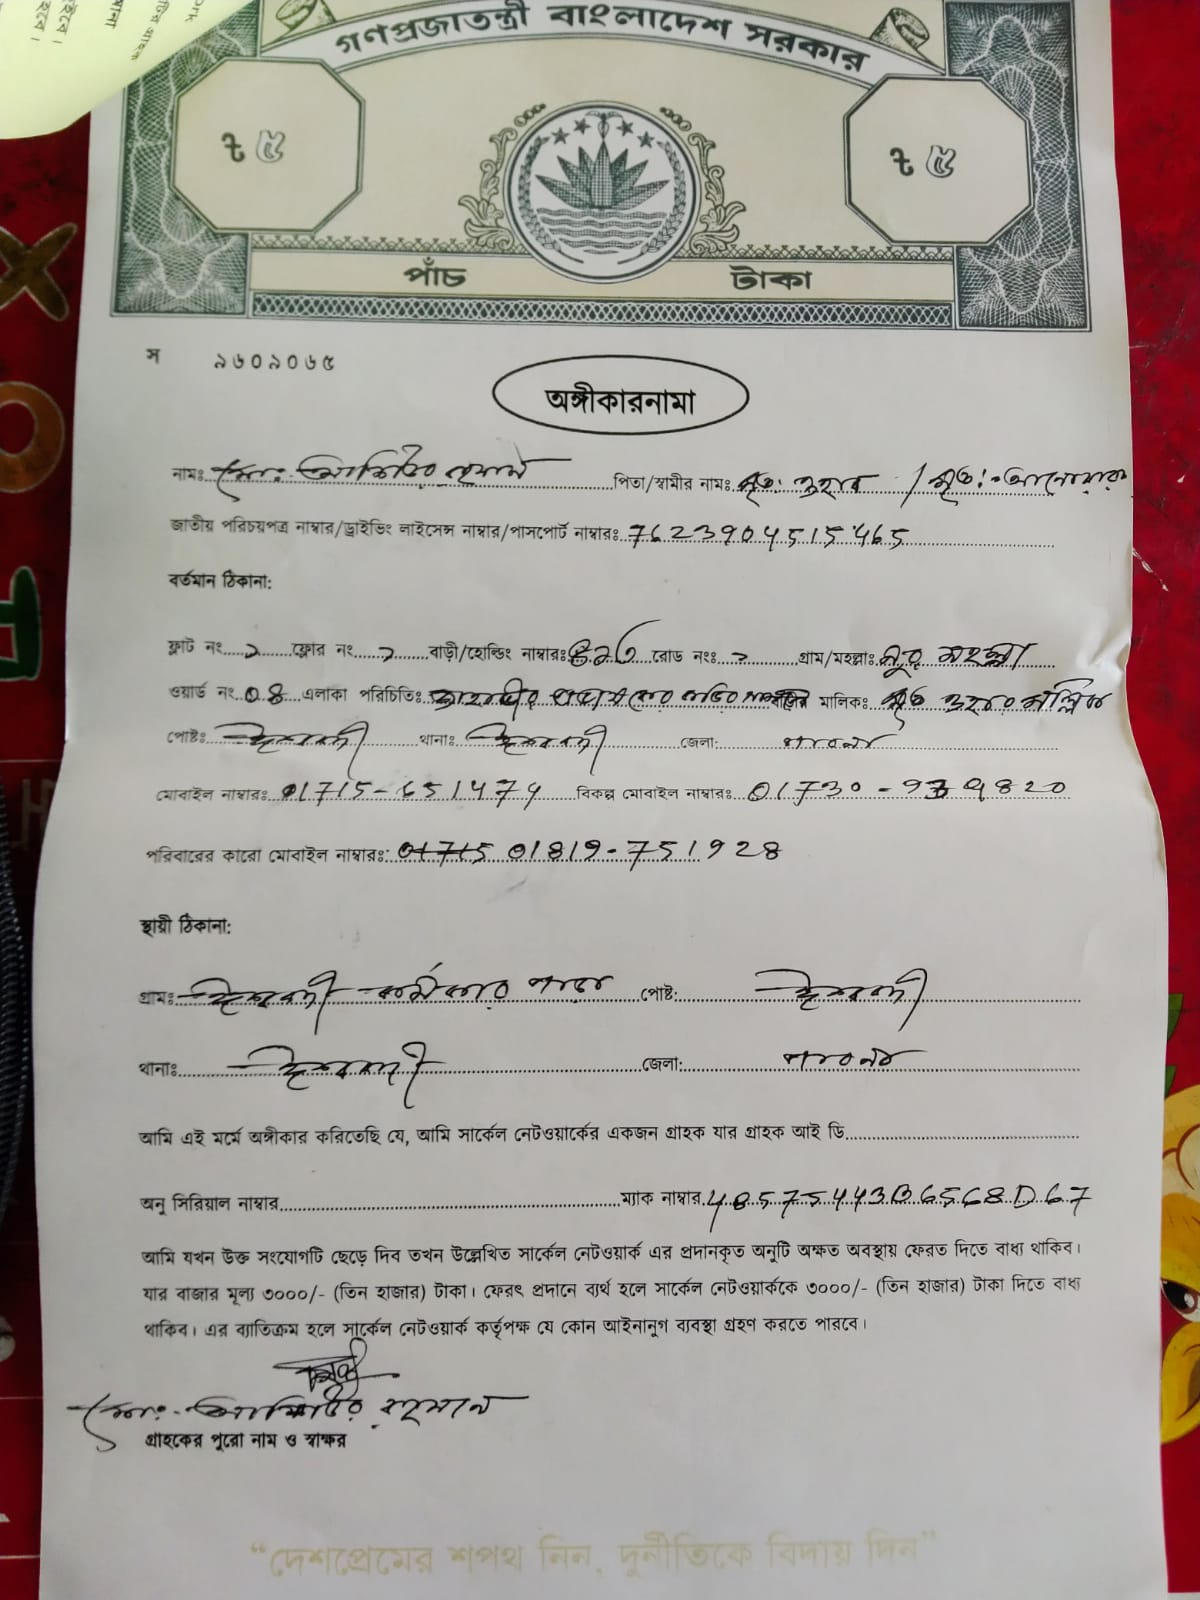 গণপ্রজাতন্ত্রী বাংলাদেশ সরকার
৳ ৫ ৳ ৫
পাঁচ টাকা
স ৯৬০৯০৬৫
অঙ্গীকারনামা
নামঃ মোঃ রহমান পিতা/স্বামীর নামঃ মৃতঃ / মৃতঃ আনোয়ারা
জাতীয় পরিচয়পত্র নাম্বার/ড্রাইভিং লাইসেন্স নাম্বার/পাসপোর্ট নাম্বারঃ 7623904515465
বর্তমান ঠিকানা:
ফ্লাট নং ফ্লোর নং বাড়ী/হোল্ডিং নাম্বারঃ রোড নংঃ গ্রাম/মহল্লাঃ নূর মহল্লা
ওয়ার্ড নং 04 এলাকা পরিচিতিঃ মালিকঃ মৃত মল্লিক
পোষ্টঃ ঈশ্বরদী থানাঃ ঈশ্বরদী জেলা: পাবনা
মোবাইল নাম্বারঃ 01715-651474 বিকল্প মোবাইল নাম্বারঃ 01730-
পরিবারের কারো মোবাইল নাম্বারঃ 01715 01819-751928
স্থায়ী ঠিকানা:
গ্রামঃ ঈশ্বরদী কর্মকার পাড়া পোষ্ট: ঈশ্বরদী
থানাঃ ঈশ্বরদী জেলা: পাবনা
আমি এই মর্মে অঙ্গীকার করিতেছি যে, আমি সার্কেল নেটওয়ার্কের একজন গ্রাহক যার গ্রাহক আই ডি
অনু সিরিয়াল নাম্বার ম্যাক নাম্বার 48575443B6568D67
আমি যখন উক্ত সংযোগটি ছেড়ে দিব তখন উল্লেখিত সার্কেল নেটওয়ার্ক এর প্রদানকৃত অনুটি অক্ষত অবস্থায় ফেরত দিতে বাধ্য থাকিব।
যার বাজার মূল্য ৩০০০/- (তিন হাজার) টাকা। ফেরৎ প্রদানে ব্যর্থ হলে সার্কেল নেটওয়ার্ককে ৩০০০/- (তিন হাজার) টাকা দিতে বাধ্য
থাকিব। এর ব্যাতিক্রম হলে সার্কেল নেটওয়ার্ক কর্তৃপক্ষ যে কোন আইনানুগ ব্যবস্থা গ্রহণ করতে পারবে।
মোঃ রহমান
গ্রাহকের পুরো নাম ও স্বাক্ষর
“দেশপ্রেমের শপথ নিন, দুর্নীতিকে বিদায় দিন”